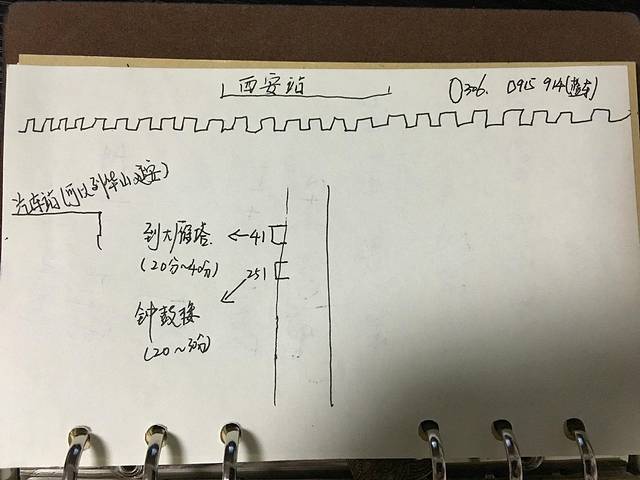 西安站
306. 915 914(
汽车站(可以到华山 延安)
到大雁塔 ← 41
(20分~40分) 251
钟鼓楼
(20~30分)